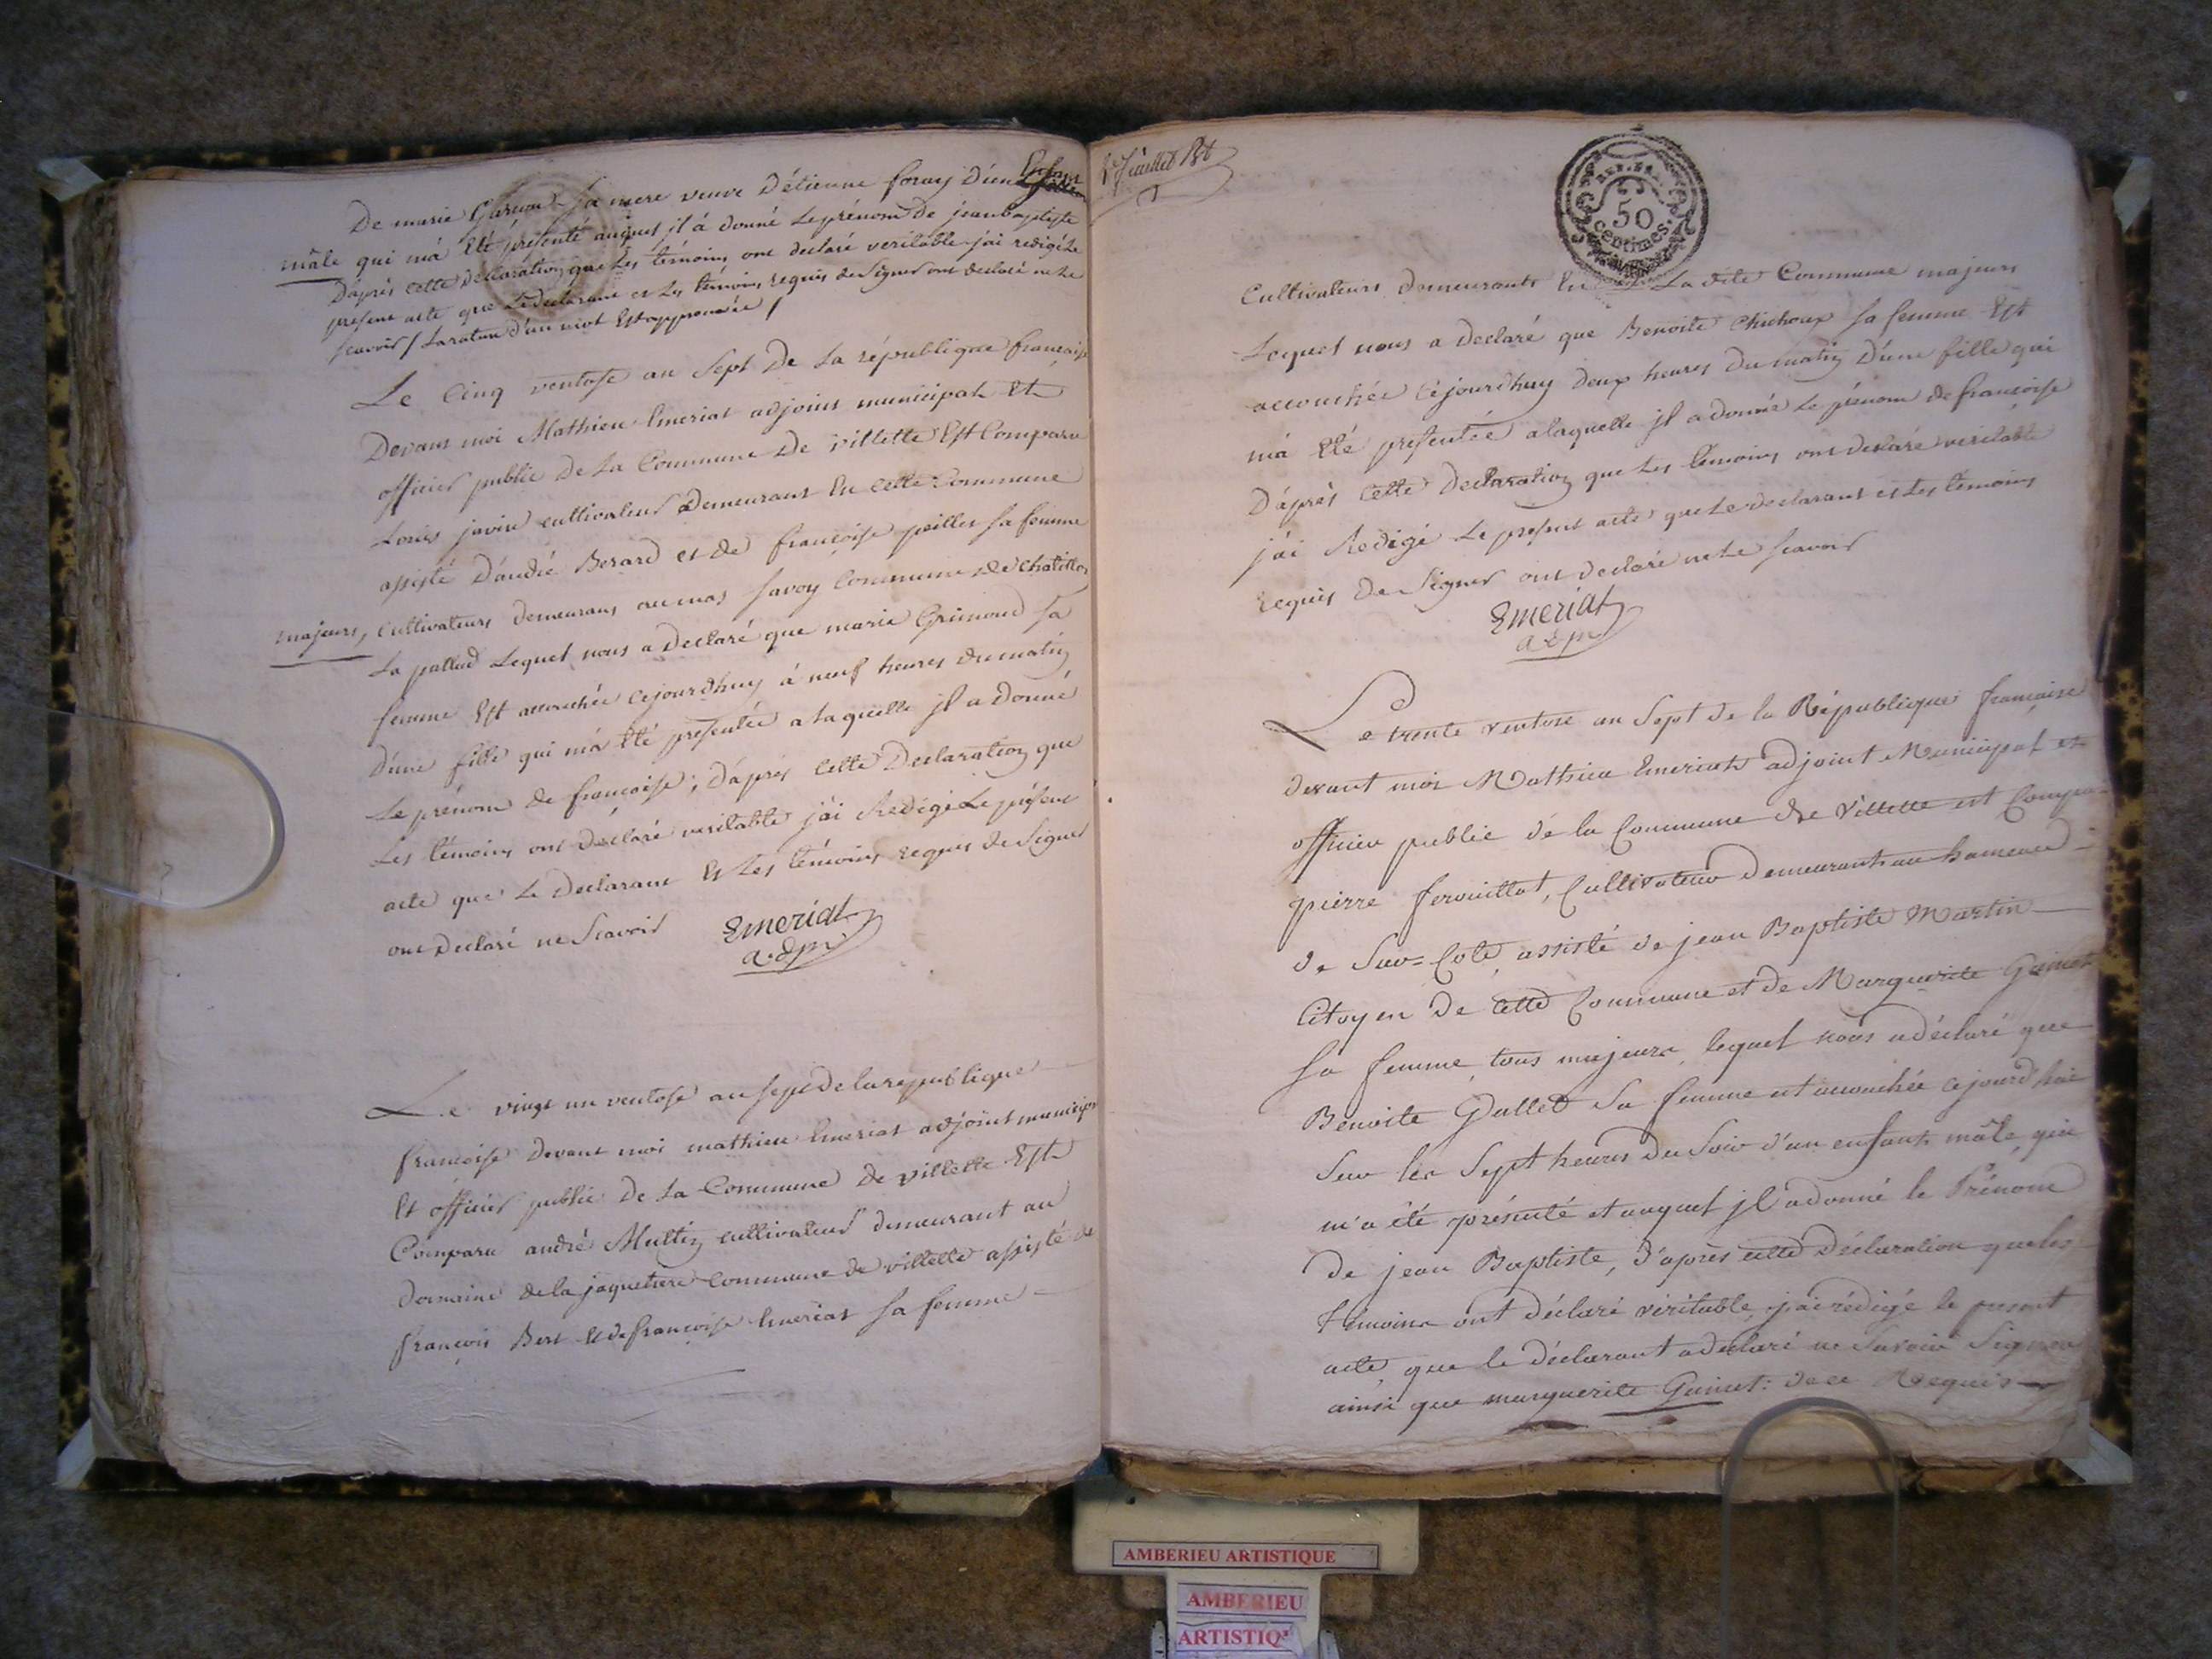 De marie sa mere veuve D'étienne foray D'un Enfant
mâle qui m'a Eté presenté auquel jl á donné Le prénom de jean baptiste
D'aprés cette declaration que Les témoins ont declaré veritable j'ai redigé Le
present acte que Le declarant et Les témoins requis de Signer ont declaré ne Le
scavoir / La rature d'un mot Est approuvée /
Le Cinq ventose an Sept De La république francaise
Devant moi Mathieu Emeriat adjoint municipal Et
officier public De La Commune De villette Est Comparu
Louis javire cultivateur Demeurant En cette Commune
assisté D'andré Berard et de francoise peiller sa femme
majeurs, cultivateurs demeurans au mas Savoy Commune de Chatillon
La pallud Lequel nous a Declaré que marie Grimaud sa
femme Est accouchée cejourdhuy á neuf heures du matin
D'une fille qui m'a Eté presentée a Laquelle jl a Donné
Le prénom de francoise ; D'aprés cette Declaration que
Les témoins ont declaré veritable j'ai Redigé Le présent
acte que Le Declarant Et Les témoins requis de Signer
ont Declaré ne Scavoir Emeriat
a.d.m.
Le vingt un ventose an sept de la republique
francoise Devant moi mathieu Emeriat adjoint municipal
Et officier public De La Commune de villette Est
Comparu andré Multin cultivateur demeurant au
Domaine de la jaquetiere Commune de villette assisté de
francois Bert Et de francoise Emeriat sa femme
Juillet
REP. FRA.
50
centimes
Cultivateurs demeurants En La dite Commune majeurs
Lequel nous a Declaré que Benoite Chichoux sa femme Est
accouchée Cejourdhuy deux heures du matin D'une fille qui
m'á Eté presentée a laquelle jl a donné Le prénom de francoise
D'áprés cette declaration que Les témoins ont declaré veritable
j'ai Redigé Le present acte que Le declarant et Les témoins
requis De Signer ont declaré ne Le scavoir
Emeriat
a.d.m
Le trente ventose an Sept de la République francaise
devant moi Mathieu Emeriat adjoint Municipal et
officier public de la Commune de Villette est Compa-
pierre ferouillat, Cultivateur demeurant au hameau -
de Sur=Cote, assisté de jean Baptiste Martin
Citoyen de cette Commune et de Marguerite Guinet
sa femme tous majeurs, lequel nous a déclaré que
Benoite Gallet sa femme est accouchée cejourd'hui
Sur les Sept heures du Soir d'un enfant mâle, qui
m'a été présenté et auquel jl a donné le Prénom
de jean Baptiste, d'après cette déclaration que les
témoins ont déclaré véritable, j'ai rédigé le present
acte, que le déclarant a declaré ne Savoir Signer
ainsi que marguerite Guinet: de ce Requis
AMBERIEU ARTISTIQUE
AMBERIEU
ARTISTIQ